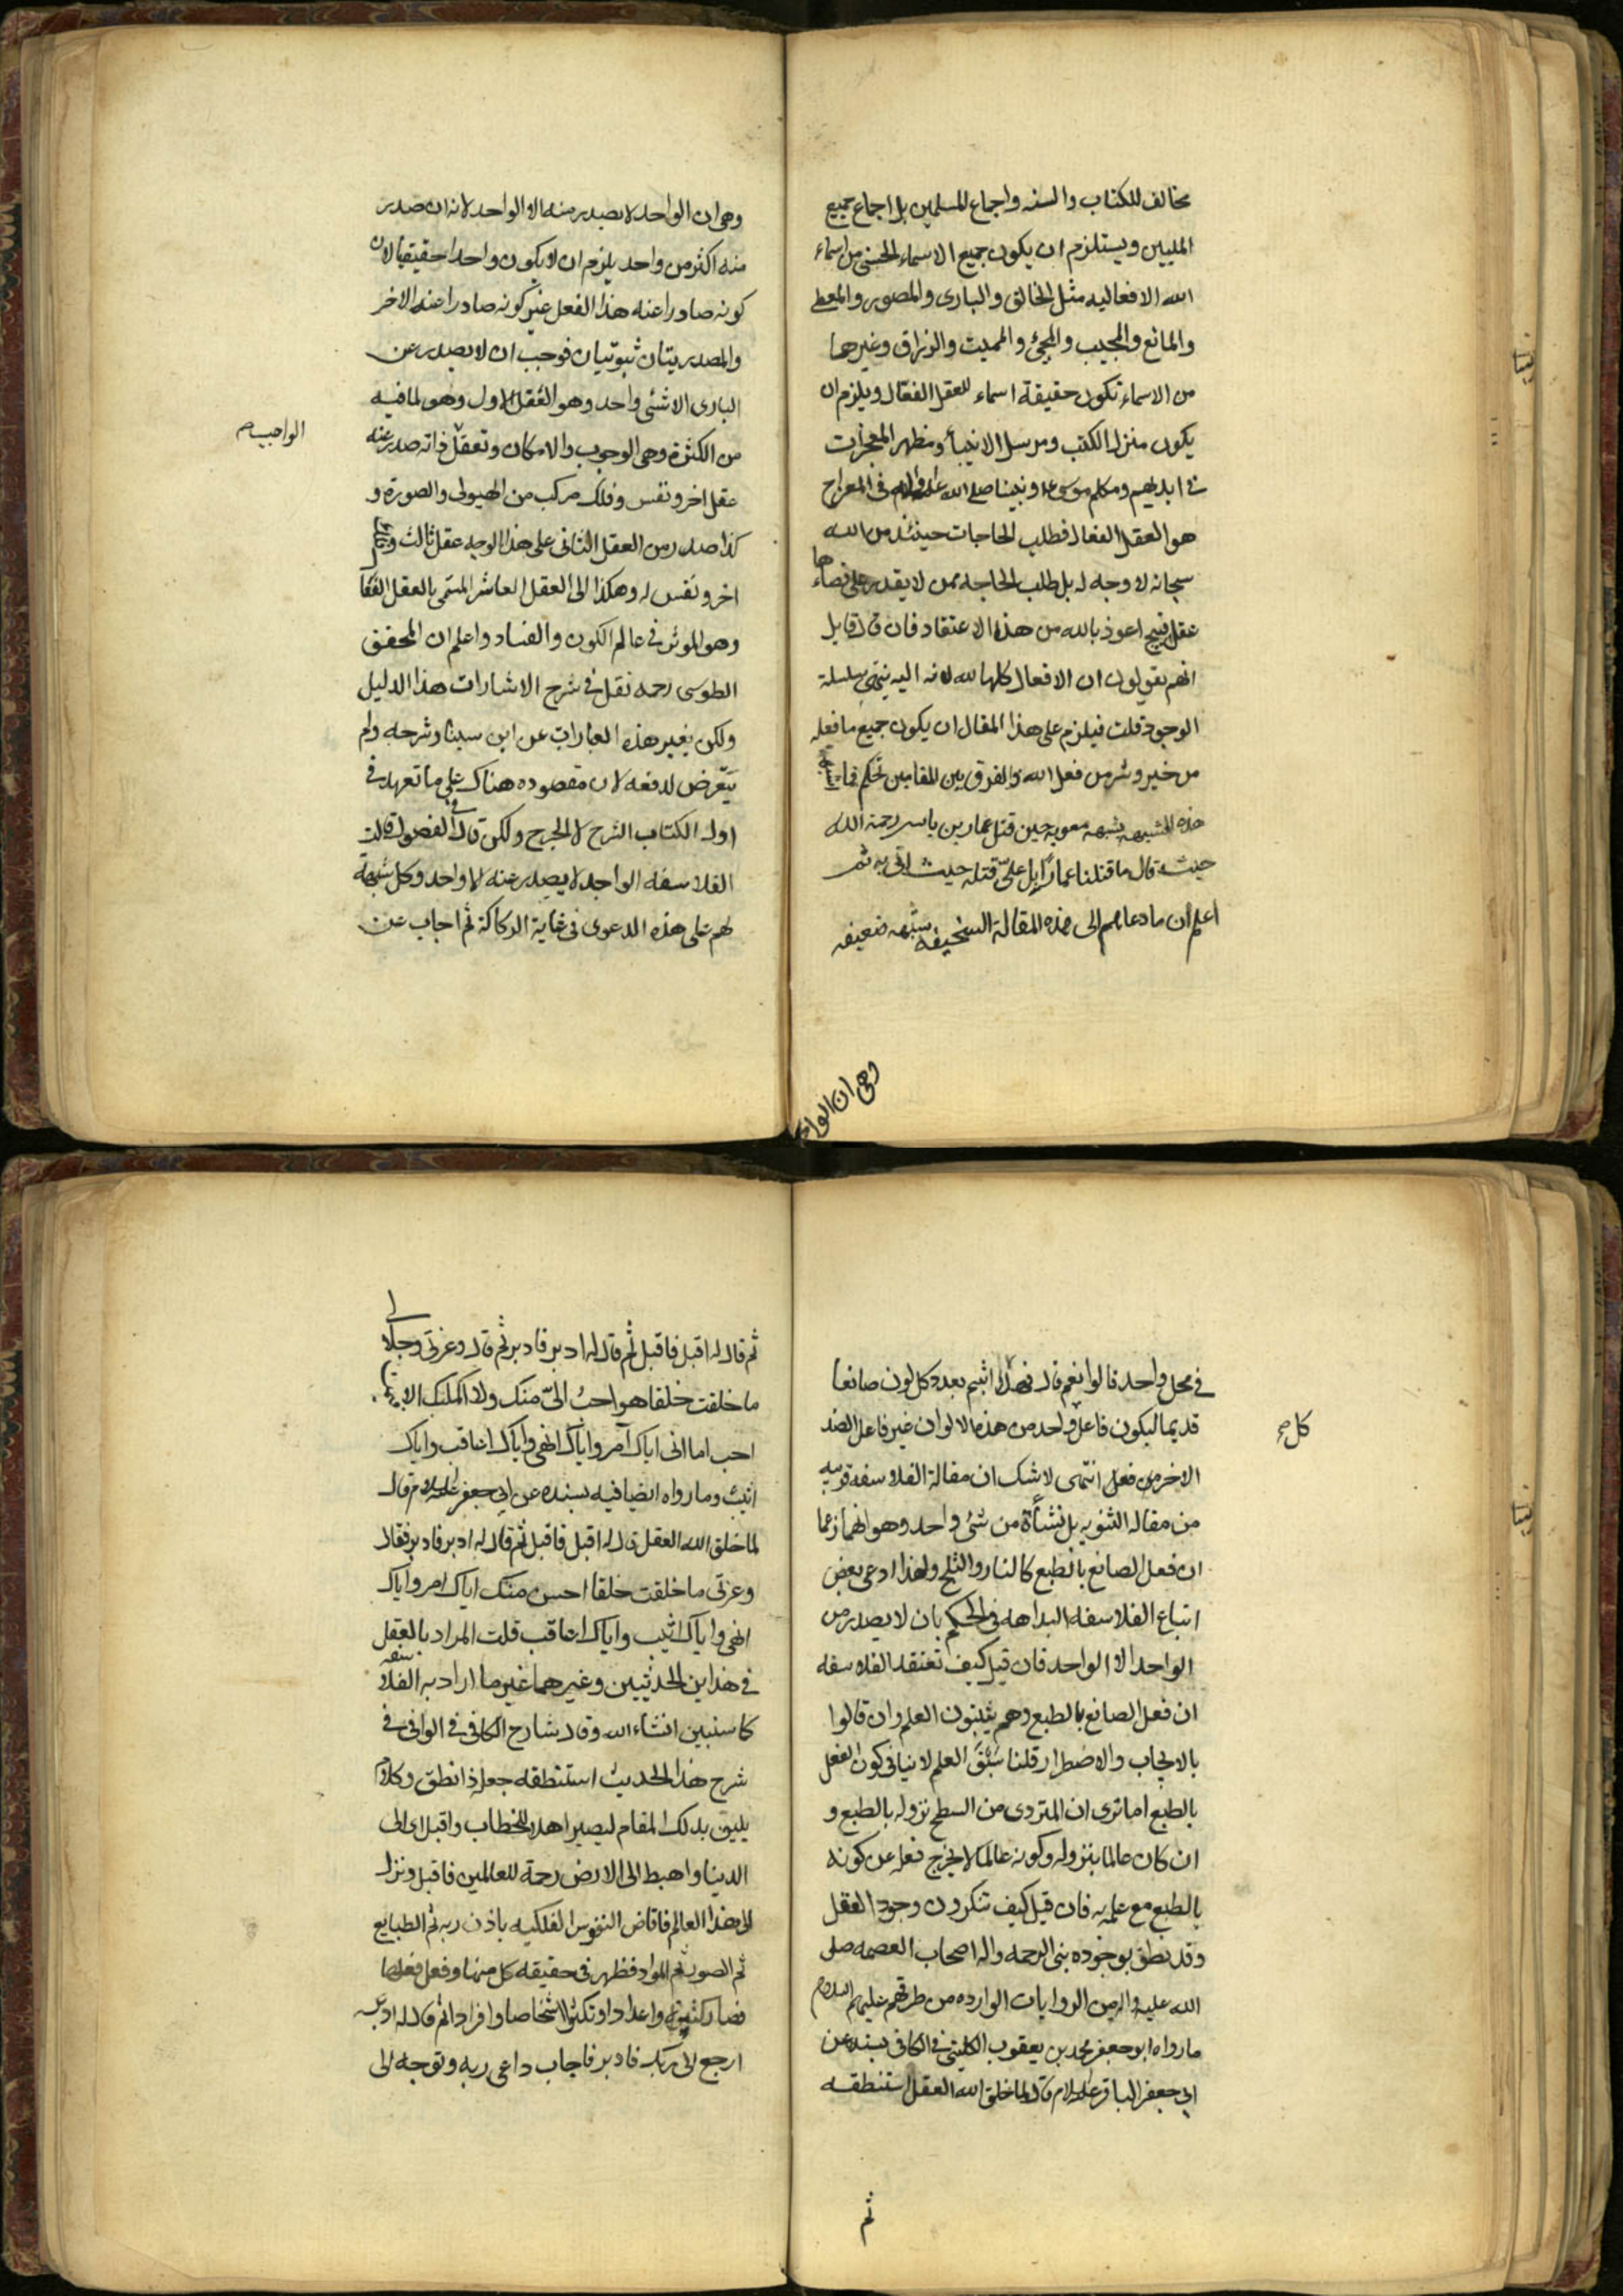 مخالف للكتاب والسنه واجماع المسلمين بل اجماع جميع
المليين ويستلزم ان يكون جميع الاسماء الحسنى من اسماء
الله الافعاليه مثل الخالق والبارى والمصور والمعطى
والمانع والمجيب والمحيئ والمميت والرزاق وغيرها
من الاسماء تكون حقيقة اسماء للعقل الفعّال ويلزم ان
يكون منزل الكتب ومرسل الانبيأ ومظهر المعجزات
فى ايديهم ومكلم موسى ع ونبينا صلى الله عليه واله فى المعراج
هو العقل الفعال فطلب الحاجات حينئذ من الله
سبحانه لا وجه له بل طلب الحاجه ممن لا يقدر على قضاءها
عقل قبيح اعوذ بالله من هذا الاعتقاد فان قال قايل
انهم يقولون ان الافعال كلها لله لانه اليه ينتهى سلسلة
الوجود قلت فيلزم على هذا المقال ان يكون جميع ما فعله
من خير وشر من فعل الله والفرق بين المقامين تحكم
هذه الشبهه بشبهه معويه حين قتل عمار بن ياسر رحمة الله
حيث قال ما قتلنا عمارًا بل علىّ قتله حيث اتى به ثم
اعلم أن ما دعاهم الى هذه المقالة السخيفه شبهه ضعيفه
وهى ان الواحد
وهى ان الواحد لا يصدر منه الا الواحد لانه ان صدر
منه اكثر من واحد يلزم ان لا يكون واحدا حقيقيا لان
كونه صادرا عنه هذا الفعل غير كونه صادرا عنه الاخر
والمصدريتان ثبوتيان فوجب ان لا يصدر عن
البارى الا شئى واحد وهو العقل الاول وهو لما فيه
الواجب صح
من الكثرة وهى الوجوب والامكان وتعقل ذاته صدر عنه
عقل اخر ونفس وفلك مركب من الهيولى والصورة و
كذا صدر من العقل الثانى على هذا الوجه عقل ثالث وفلك
اخر ونفس له وهكذا الى العقل العاشر المسمّى بالعقل الفعا
وهو الموثر فى عالم الكون والفساد واعلم ان المحقق
الطوسى رحمه نقل فى شرح الاشارات هذا الدليل
ولكن بغير هذه العبارات عن ابن سينا وشرحه ولم
يتعّرض لدفعه لان مقصوده هناك على ما تعهد فى
اول الكتاب الشرح لا الجرح ولكن قال فى الفصول قالت
الفلاسفه الواحد لا يصدر عنه الا واحد وكل شبهة
لهم على هذه الدعوى فى غاية الركاكة ثم اجاب عن
فى محل واحد قالوا نعم قال فهذا اثبتم بعدد كل لون صانعا
قديما ليكون فاعل واحد من هذه الالوان غير فاعل الضد
كل صح
الاخر من فعل انتهى لا شك ان مقالة الفلاسفه قريبه
من مقاله الثنويه بل نشأة من شئ واحد وهو انهما زعما
ان فعل الصانع بالطبع كالنار والثلج ولهذا ادعى بعض
اتباع الفلاسفه البداهه فى الحكم بان لا يصدر من
الواحد الا الواحد فان قيل كيف تعتقد الفلاسفه
ان فعل الصانع بالطبع وهم يثبتون العلم وان قالوا
بالايجاب والاضطرار قلنا سَبْقَ العلم لا ينافى كون الفعل
بالطبع اما ترى ان المتردى من السطح نزوله بالطبع و
ان كان عالما بنزوله وكونه عالما لا يخرج فعله عن كونه
بالطبع مع علمه به فان قيل كيف تنكرون وجود العقل
وقد نطق بوجوده بنى الرحمه واله اصحاب العصمه صلى
الله عليه واله من الروايات الوارده من طرقهم عليهم السلام
ما رواه ابو جعفر محمد بن يعقوب الكلينى فى الكافى بسنده عن
ابى جعفر الباقر عليه السلام قال لما خلق الله العقل استنطقه
ثم
ثم قال له اقبل فاقبل ثم قال له ادبر فادبر ثم قال وعزتى وجلالى
ما خلقت خلقا هو احبُ الىّ منك ولا اكملتك الا فيمن
احب اما انى اياك آمر واياك انهى واياك اعاقب واياك
اثيب وما رواه ايضا فيه بسنده عن ابى جعفر عليه السلام قال
لما خلق الله العقل قال له اقبل فاقبل ثم قال له ادبر فادبر فقال
وعزتى ما خلقت خلقا احسن منك اياك امر واياك
انهى واياك اثيب واياك اعاقب قلت المراد بالعقل
فى هذاين الحديثين وغيرهما غير ما اراد به الفلاسفه
كما سنبين انشاء الله وقال شارح الكافى فى الوافى فى
شرح هذا الحديث استنطقه جعله ذا نطق وكلام
يليق بذلك المقام ليصير اهلا للخطاب واقبل اى الى
الدنيا واهبط الى الارض رحمة للعالمين فاقبل ونزل
الى هذا العالم فافاض النفوس الفلكيه باذن ربه ثم الطبايع
ثم الصور ثم المواد فظهر فى حقيقه كل منها وفعل فعلها
فصار كثيرة واعدادا وتكثر اشخاصا وافرادا ثم قال له ادبر
ارجع الى ربك فادبر فاجاب داعى ربه وتوجه الى